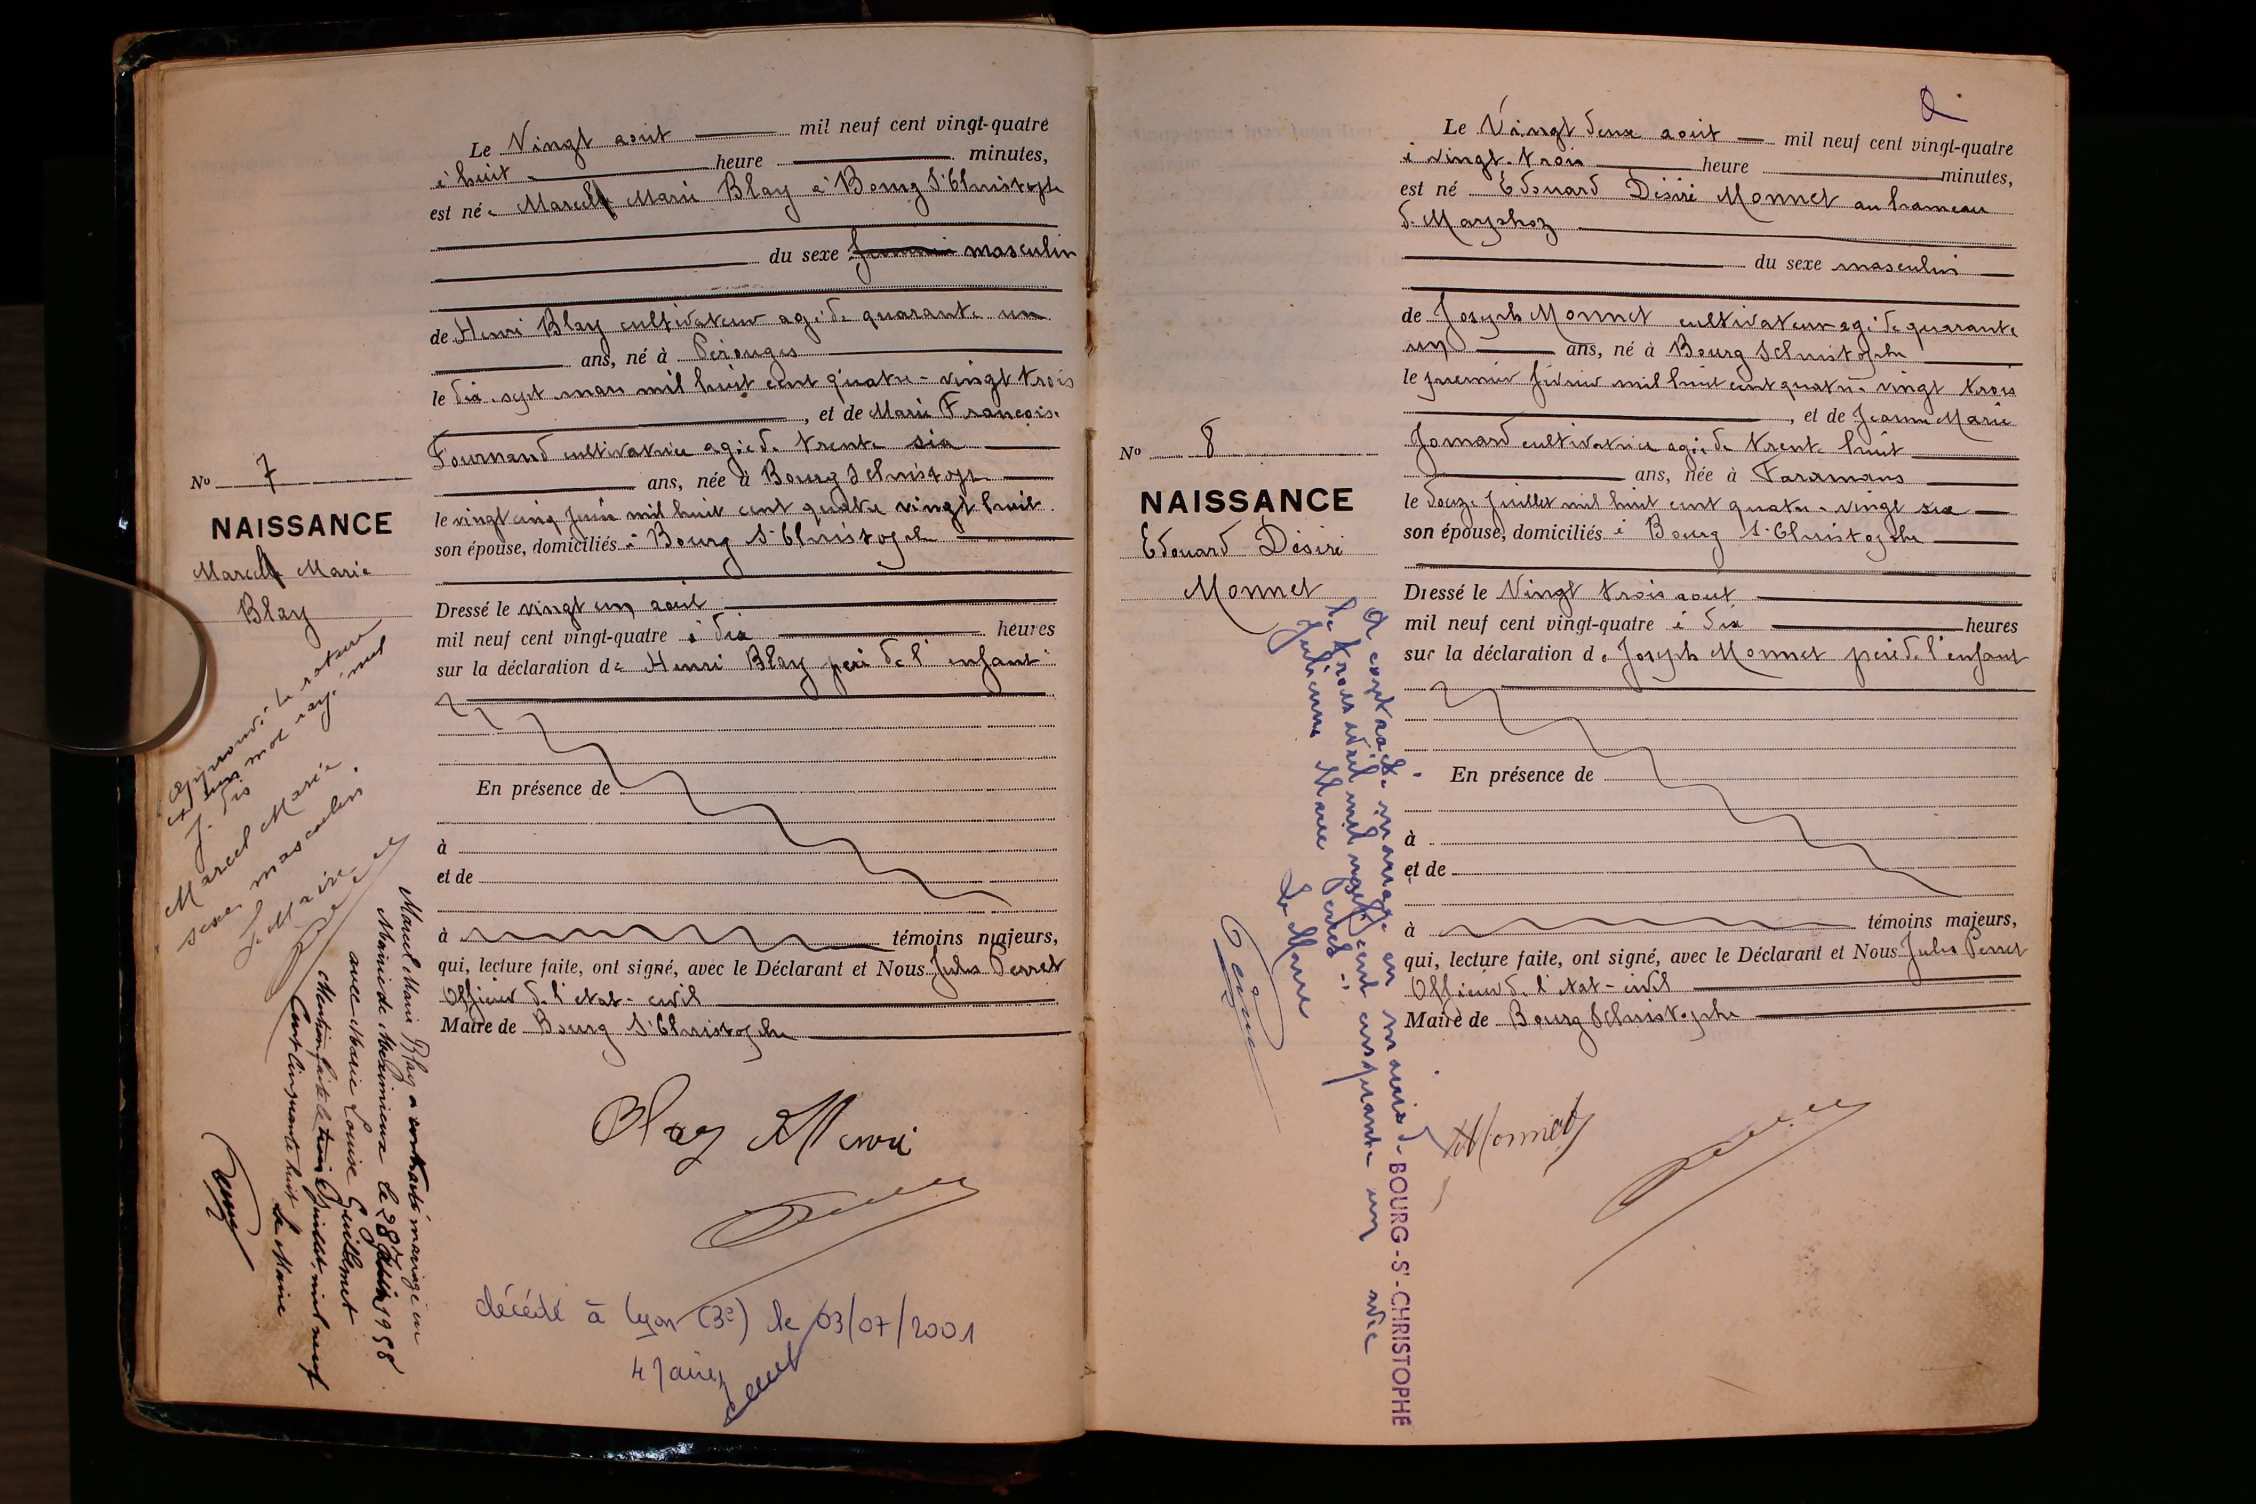 Le Vingt aout mil neuf cent vingt-quatre
à huit heure minutes,
est né Marcel Marie Blay à Bourg St Christophe
du sexe féminin masculin
de Henri Blay cultivateur agé de quarante un
ans, né à Pérouges
le dix sept mars mil huit cent quatre-vingt trois
, et de Marie Françoise
Fournand cultivatrice agée de trente six
ans, née à Bourg St Christophe
le vingt cinq juin mil huit cent quatre vingt huit
son épouse, domiciliés à Bourg St Christophe
Dressé le vingt un aout
mil neuf cent vingt-quatre à dix heures
sur la déclaration de Henri Blay père de l'enfant
En présence de
à
et de
à témoins majeurs,
qui, lecture faite, ont signé, avec le Déclarant et Nous Jules Perret
Officier de l'état-civil
Maire de Bourg St Christophe
Blay Henri
décédé à Lyon (3e) le 03/07/2001
No 7
NAISSANCE
Marcel Marie
Blay
approuvé la rature
et un mot rayé nul
J. dis
Marcel Marie
sexe masculin.
Le Maire
Marcel Marie Blay a contracté mariage en
Mairie de Meximieux le 28 Juin 1958
avec Marie Louise Guillemet
Mention faite le trois Juillet mil neuf
Cent Cinquante huit Le Maire
Le Vingt deux aout mil neuf cent vingt-quatre
à vingt-trois heure minutes,
est né Edouard Désiré Monnet au hameau
de Marphoz
du sexe masculin
de Joseph Monnet cultivateur agé de quarante
un ans, né à Bourg St Christophe
le premier février mil huit cent quatre-vingt trois
, et de Jeanne Marie
Jomand cultivatrice agée de trente huit
ans, née à Faramans
le douze juillet mil huit cent quatre-vingt six
son épouse, domiciliés à Bourg St Christophe
Dressé le Vingt trois aout
mil neuf cent vingt-quatre à dix heures
sur la déclaration de Joseph Monnet père de l'enfant
En présence de
à
et de
à témoins majeurs,
qui, lecture faite, ont signé, avec le Déclarant et Nous Jules Perret
Officier de l'état-civil
Maire de Bourg St Christophe
Monnet
No 8
NAISSANCE
Edouard Désiré
Monnet
A contracté mariage en mairie de BOURG-St-CHRISTOPHE
le trois avril mil neuf cent cinquante un avec
Julienne Marie Perret
Le Maire